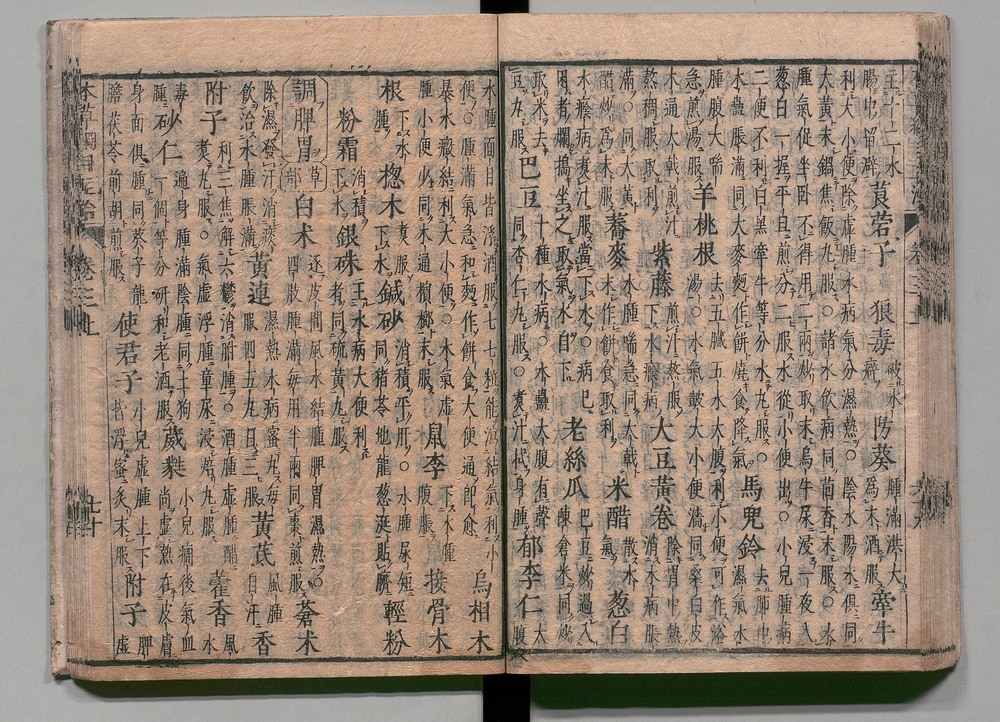 主十二水
腸中留澼 莨菪子 狼毒 破水癖 防葵 腫滿洪大 爲末酒服 牽牛
利大小便除虛腫○水病氣分濕熱○陰水陽水俱同
大黃末鍋焦飯丸服○諸水飲病同茴香末服○水
腫氣促坐臥不得用二兩炒取末烏牛尿浸一夜入
葱白一握平旦煎分二服水從小便出○小兒腫病
二便不利白黑牽牛等分水丸服○ 馬兜鈴 去肺中濕氣水
水蠱脹滿同大麥麪作餅燒食降氣
腫腹大喘 羊桃根 去五臟五水大腹利小便可作浴
急煎湯服 湯○水氣皷大小便澁同桑白皮
木通大戟煎汁 紫藤 煎汁熬服 下水癊病 大豆黃卷 除胃中熱消水病脹
熬稠服 滿○同大黃 蕎麥 水腫喘急同大戟
醋炒爲末服 末作餅食取利 米醋 散水氣 葱白
水癊病煮汁服當下水○病已
困者爛搗坐之取氣水自下 老絲瓜 巴豆炒過入陳倉米同炒
取米去豆丸服 巴豆 十種水病○水蠱大腹有聲
同杏仁丸服○煮汁拭身腫○ 郁李仁 大腹
水腫面目皆浮酒服七七粒能瀉結氣利小 烏桕木
便○腫滿氣急和麵作餅食大便通即愈
暴水癥結利大小便○水氣虛 鼠李 下水腫腹脹 接骨木
腫小便少同木通檳榔末服
根 下水腫 楤木 下水煮服 鍼砂 消積平肝○水腫尿短同猪苓地龍葱涎貼臍 輕粉
粉霜 消積下水 銀硃 主水病大便利者同硫黃丸服
調脾胃 草部 白术 逐皮間風水結腫脾胃濕熱○四肢腫滿每用半兩同棗煎服 蒼术
除濕發汗消痰飲治水腫脹滿 黃連 濕熱水病蜜丸每服四五丸日三服 黃芪 風腫自汗 香
附子 利三焦解六鬱消胕腫○酒腫虛腫醋煑丸服○氣虛浮腫童尿浸焙丸服 藿香 風水
毒腫 砂仁 遍身腫滿陰腫同土狗一個等分研和老酒服 葳蕤 小兒癇後氣血尚虛熱在皮膚
身面俱腫同葵子龍膽茯苓前胡煎服 使君子 小兒虛腫上下皆浮蜜炙末服 附子 脾虛
本草綱目主治 卷三上
七十